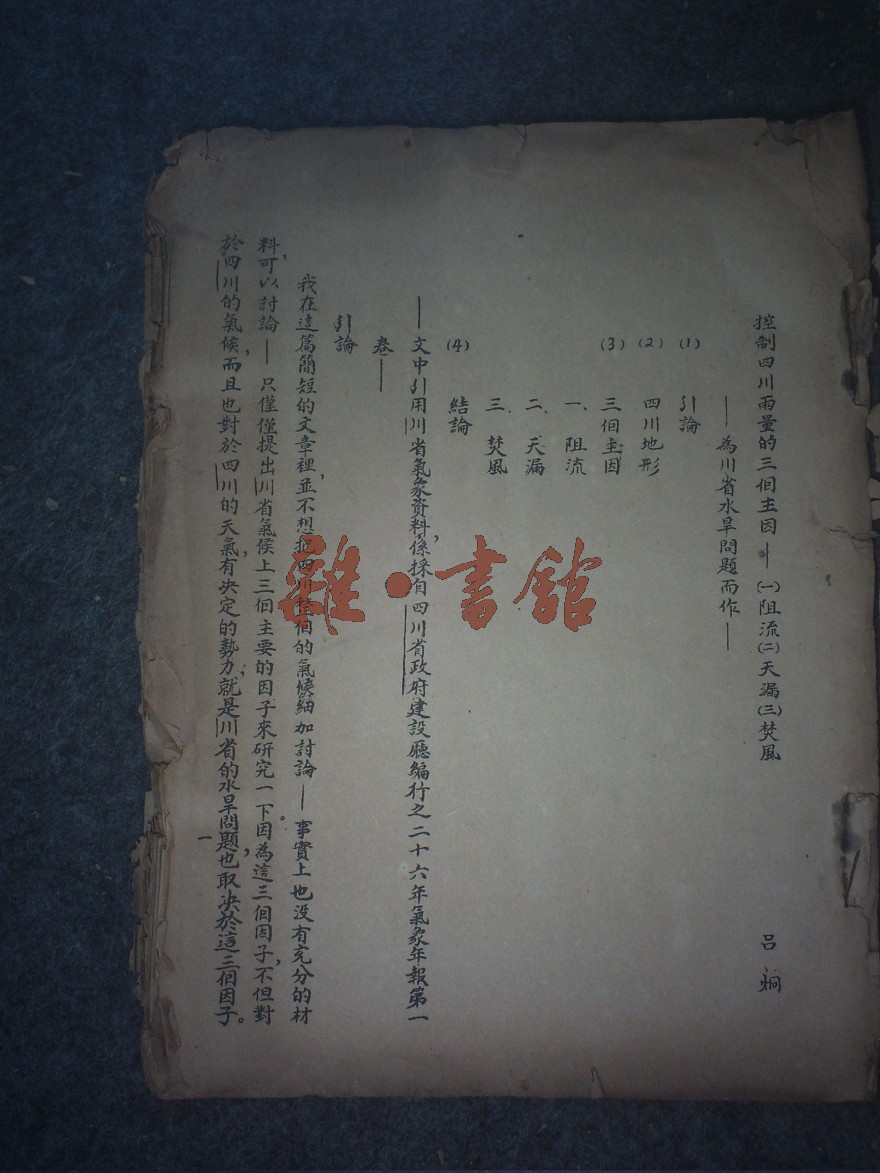 控制四川雨量的三個主因——(一)阻流(二)天漏(三)焚風
——為川省水旱問題而作——
呂炯
(1) 引論
(2) 四川地形
(3) 三個主因
一、阻流
二、天漏
三、焚風
(4) 結論
——文中引用川省氣象資料,係採自四川省政府建設廳編行之二十六年氣象年報第一
卷——
引論
我在這篇簡短的文章裡,並不想把四川整個的氣候細加討論——事實上也没有充分的材
料,可以討論——只僅僅提出川省氣候上三個主要的因子來研究一下。因為這三個因子,不但對
於四川的氣候,而且也對於四川的天氣,有決定的勢力,就是川省的水旱問題,也取決於這三個因子。
一
雜·書館